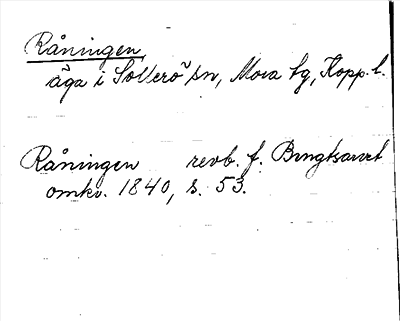 Råningen,
äga i Sollerö sn, Mora tg, Kopp. l.
Råningen revb. f. Bengtsarvet
omkr. 1840, s. 53.